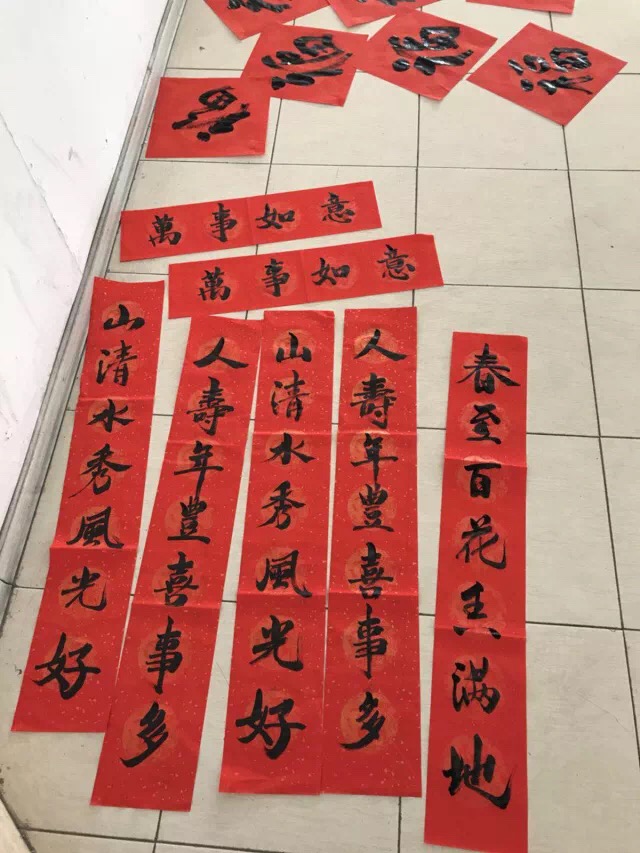 福
福
福
福
萬事如意
萬事如意
山清水秀風光好
人壽年豐喜事多
山清水秀風光好
人壽年豐喜事多
春至百花香满地